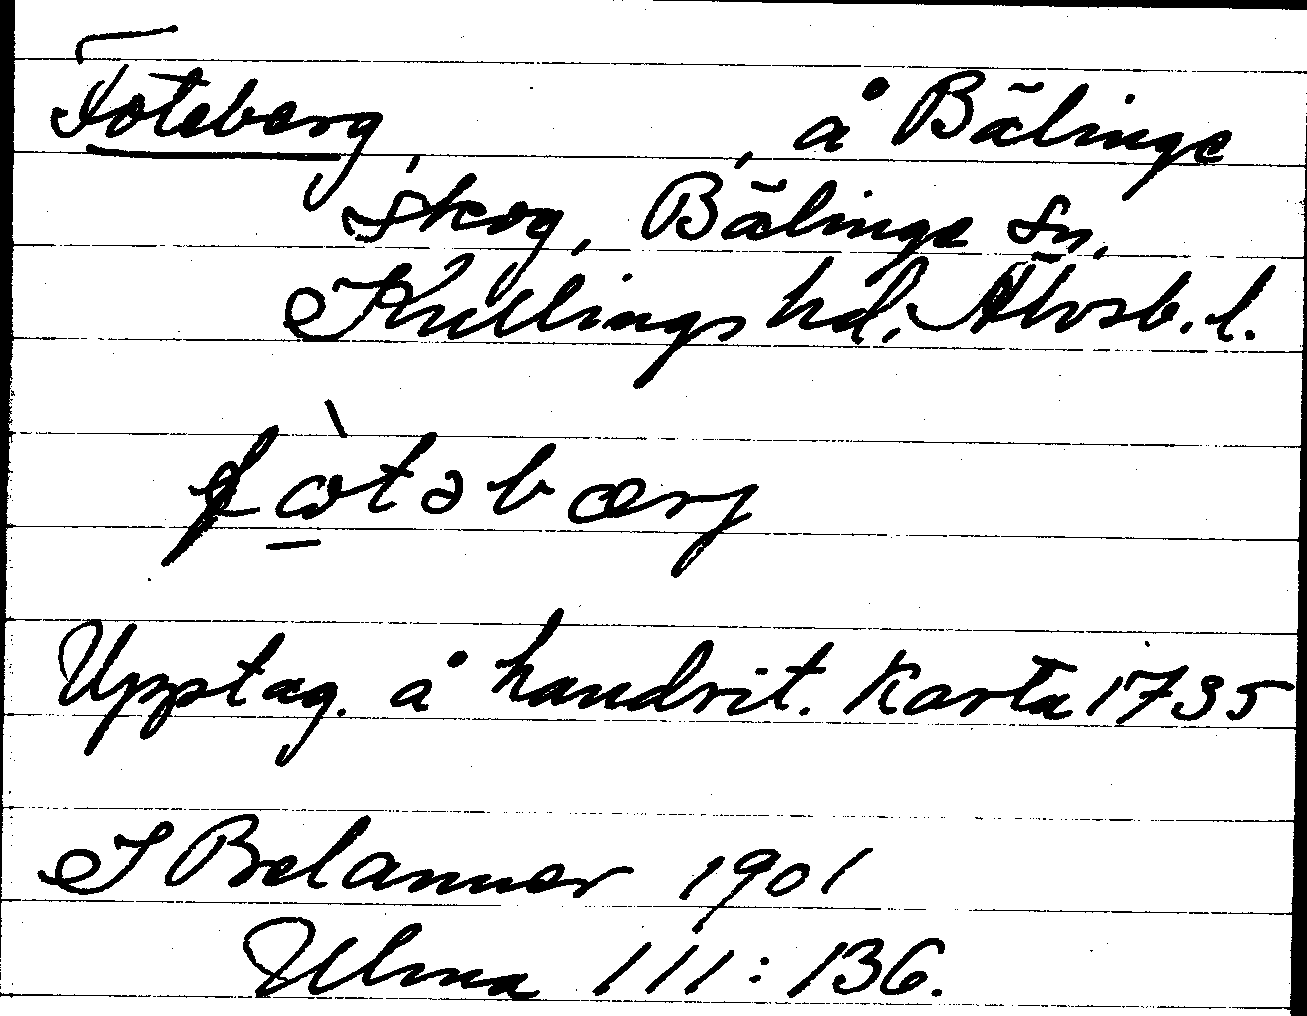 Foteberg, , å Bälinge
skog, Bälinge sn,
Kullings hd, Älvsb. l.
fὼtəbærj
Upptag. å handrit. karta 1735
S Belanner 1901
Ulma 111:136.